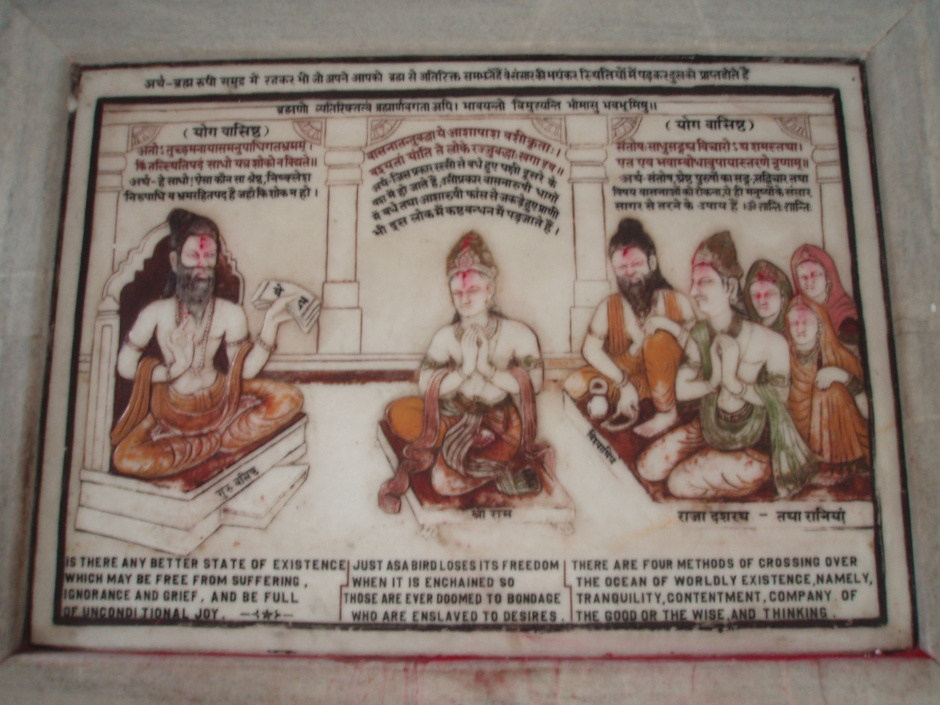 अर्थ-ब्रह्म रुपी समुद्र में रहकर भी जो अपने आपको ब्रह्म से अतिरिक्त समझते हैं वे संसार की भयंकर स्थितियों में पड़कर दुःख को प्राप्त होते हैं
ब्रह्मणो व्यतिरिक्तत्वं ब्रह्मार्णवगता अपि। भावयन्तो विमुह्यन्ति भीमासु भवभूमिषु॥
( योग वासिष्ठ )
किं तत्स्थितिपदं साधो यत्र शोको न विद्यते॥
अर्थ-हे साधो! ऐसा कौन सा श्रेष्ठ, निष्क्लेश
निरुपाधि व भ्रमरहित पद है जहाँ कि शोक न हो।
वासनातन्तुबद्धा ये आशापाश वशीकृताः।
वश्यतां यान्ति ते लोके रज्जुबद्धाः खगा इव॥
अर्थ-जिस प्रकार रस्सी से बंधे हुए पक्षी दूसरे के
वश में हो जाते हैं, उसी प्रकार वासनारुपी धागों
में बंधे तथा आशारुपी फांस से जकड़े हुए प्राणी
भी इस लोक में कष्ट बन्धन में पड़ जाते हैं।
( योग वासिष्ठ )
संतोषः साधुसङ्गश्च विचारोऽथ शमस्तथा।
एत एव भवाम्भोधावुपायास्तरणे नृणाम्॥
अर्थ-संतोष, श्रेष्ठ पुरुषों का सङ्ग, सद्विचार तथा
विषय वासनाओं को रोकना, ये ही मनुष्यों के संसार
सागर से तरने के उपाय हैं। ॐ शान्तिः शान्तिः
गुरु वसिष्ठ
श्री राम
विश्वामित्र
राजा दशरथ - तथा रानियाँ
IS THERE ANY BETTER STATE OF EXISTENCE
WHICH MAY BE FREE FROM SUFFERING,
IGNORANCE AND GRIEF, AND BE FULL
OF UNCONDITIONAL JOY.
JUST AS A BIRD LOSES ITS FREEDOM
WHEN IT IS ENCHAINED SO
THOSE ARE EVER DOOMED TO BONDAGE
WHO ARE ENSLAVED TO DESIRES.
THERE ARE FOUR METHODS OF CROSSING OVER
THE OCEAN OF WORLDLY EXISTENCE, NAMELY,
TRANQUILITY, CONTENTMENT, COMPANY OF
THE GOOD OR THE WISE, AND THINKING.